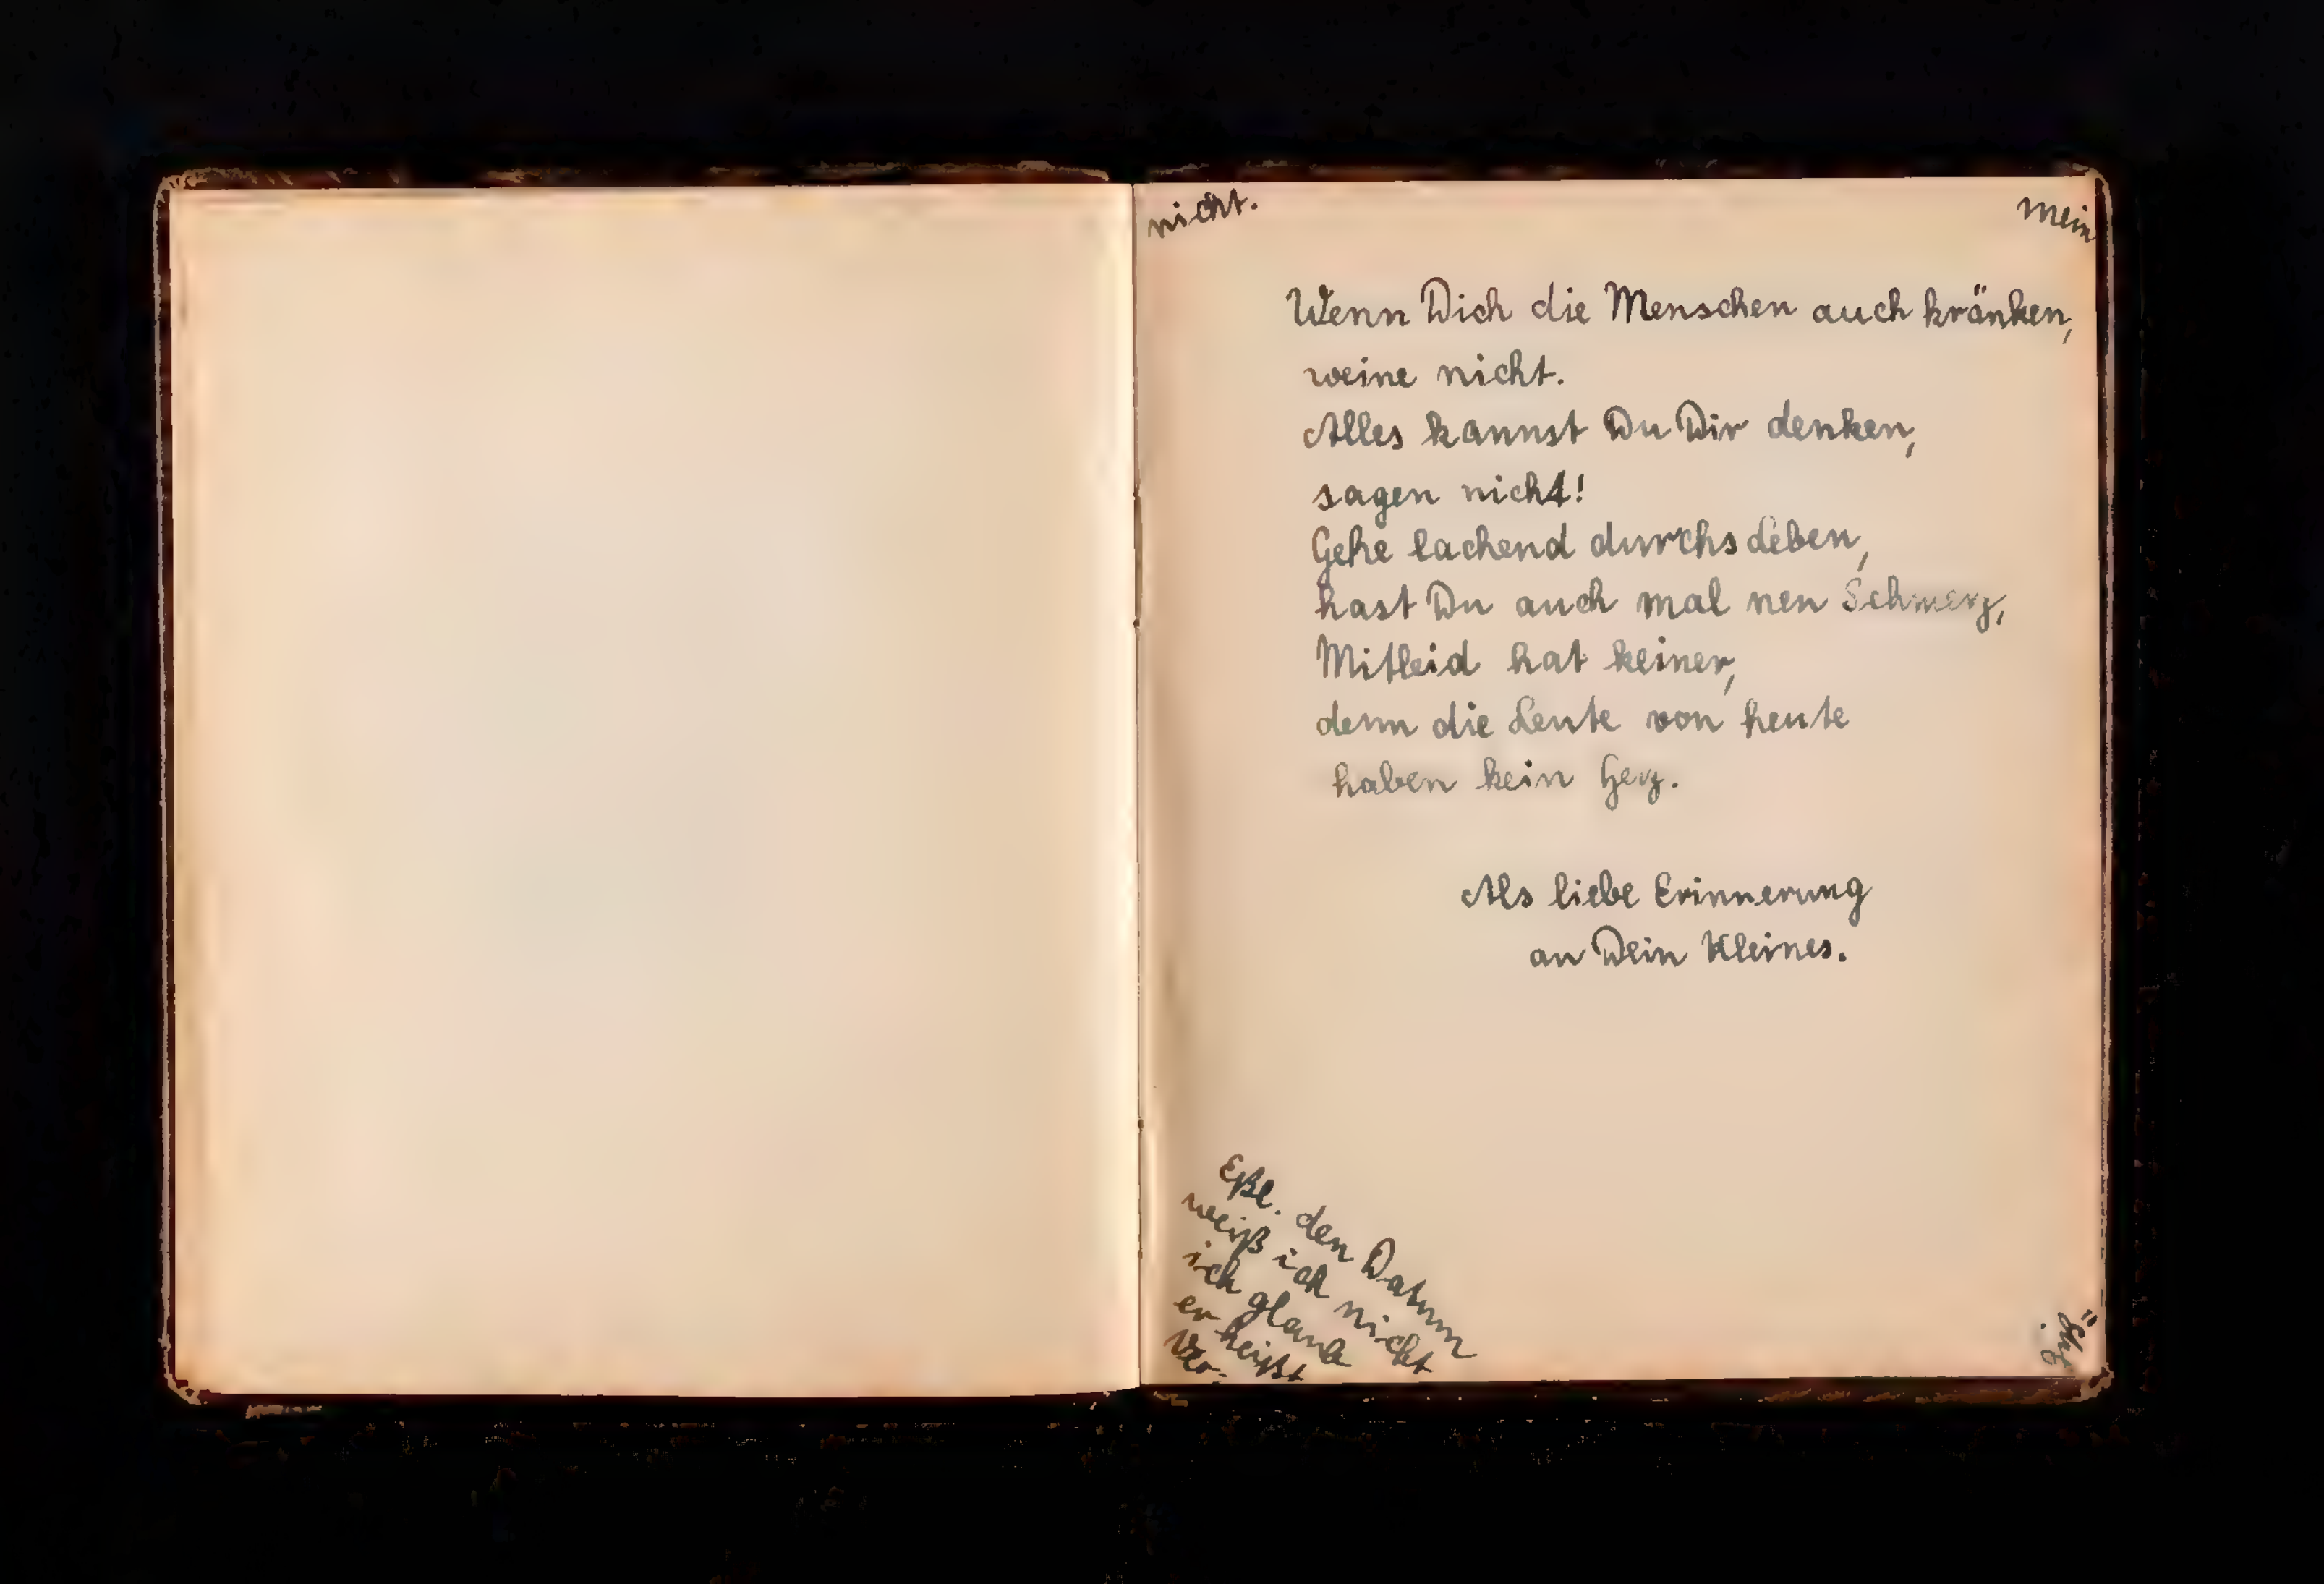 nicht.
mein
Wenn Dich die Menschen auch kränken,
weine nicht.
Alles kannst Du Dir denken,
sagen nicht!
Gehe lachend durchs Leben,
hast Du auch mal nen Schmerz,
Mitleid hat keiner,
denn die Leute von heute
haben kein Herz.
Als liebe Erinnerung
an Dein Kleines.
Eßl. den Datum
weiß ich nicht
ich glaub
er heißt
Ver-